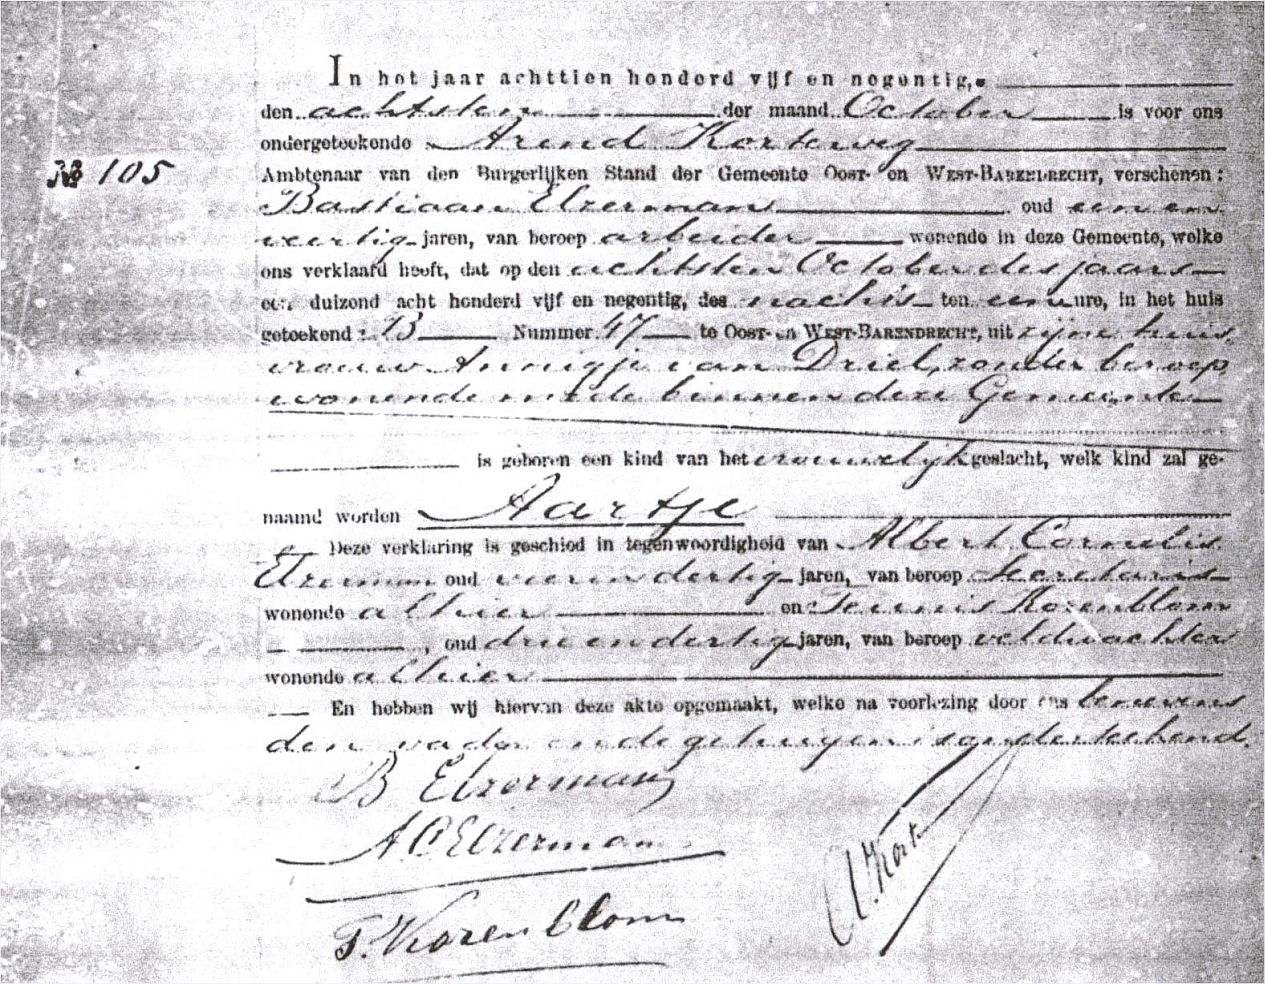 In het jaar achttien honderd vijf en negentig,
den achtsten der maand October is voor ons
ondergeteekende Arend Korteweg
No 105
Ambtenaar van den Burgerlijken Stand der Gemeente Oost- en West-Barendrecht, verschenen:
Bastiaan Elzerman oud een en
veertig jaren, van beroep arbeider wonende in deze Gemeente, welke
ons verklaard heeft, dat op den achtsten October des jaars
een duizend acht honderd vijf en negentig, des nachts ten een ure, in het huis
geteekend B Nummer 47 te Oost- en West-Barendrecht, uit zijne huis
vrouw Annigje van Driel, zonder beroep
wonende mede binnen deze Gemeente
is geboren een kind van het vrouwelijk geslacht, welk kind zal ge-
naamd worden Aartje
Deze verklaring is geschied in tegenwoordigheid van Albert Cornelis
Elzerman oud vier en dertig jaren, van beroep Secretaris
wonende alhier en Teunis Korenblom
, oud drie en dertig jaren, van beroep veldwachter
wonende alhier
En hebben wij hiervan deze akte opgemaakt, welke na voorlezing door ons benevens
den vader en de getuigen is onderteekend.
B Elzerman
A C Elzerman
A. Kort
T. Korenblom